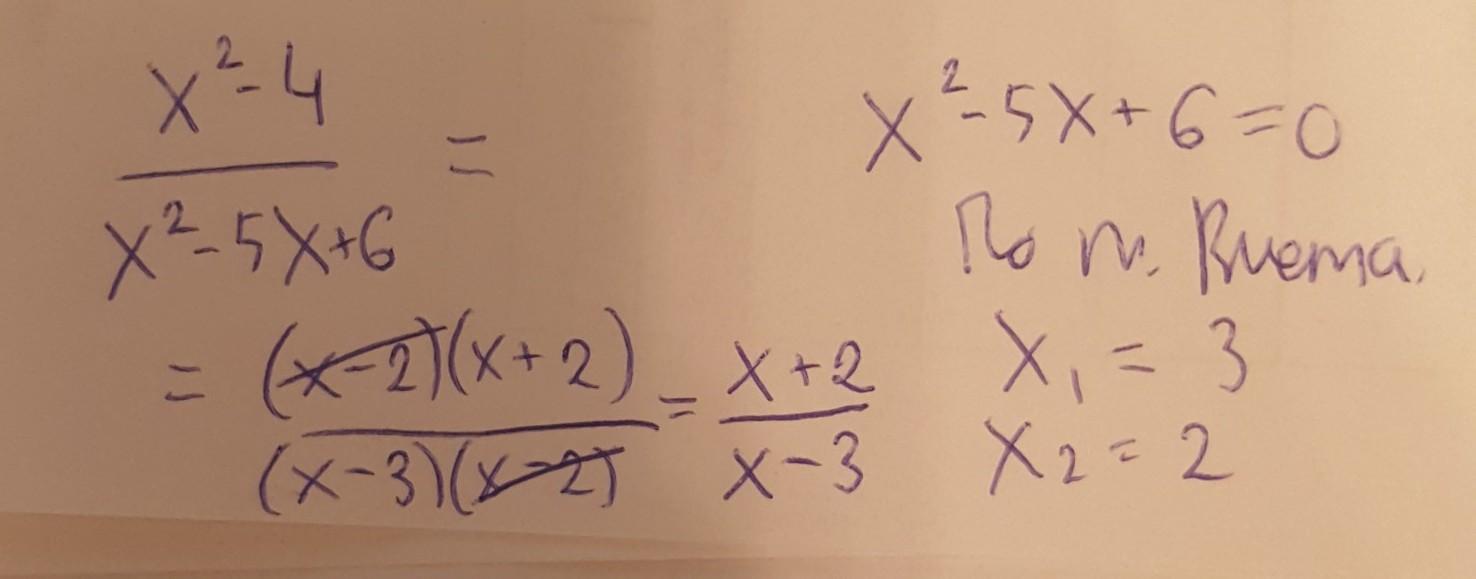 x² - 4
———
x² - 5x + 6
=
= (x - 2)(x + 2)
———
(x - 3)(x - 2)
= x + 2
———
x - 3
x² - 5x + 6 = 0
По т. Виета.
x₁ = 3
x₂ = 2